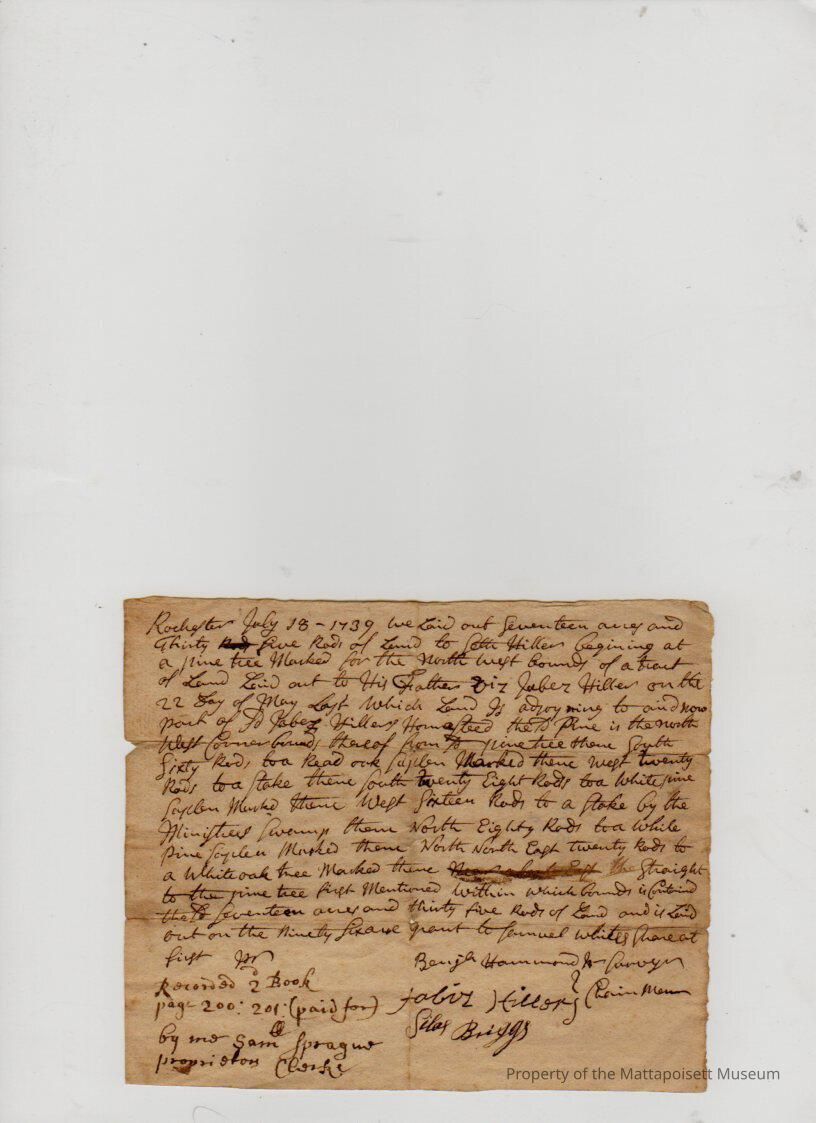 Rochester July 18 - 1739 we Laid out Seventeen acres and
Thirty Rods five Rods of Land to Seth Hiller begining at
a pine tree Marked for the North West bounds of a tract
of Land Laid out to His Father Viz Jabez Hiller on the
22 Day of May Last Which Land Is adjoyning to and now
part of Sd Jabez Hillers Homesteed the sd Pine is the north
West Corner bounds thereof from sd pine tree thenc South
Sixty Rods to a Read oak Saplen Marked thenc West twenty
Rods to a Stake thenc South twenty Eight Rods to a White pine
Saplen Marked Thenc West Sixteen Rods to a Stake by the
Ministers Swamp thenc North Eighty Rods to a While
Pine Saplen Marked thenc North North East twenty Rods to
a White oak tree Marked thenc the Straight
to the pine tree first Mentioned Within which bounds is Contained
the sd Seventeen acres and thirty five Rods of Land and is Laid
out on the Ninety Six acre grant to Samuel Whites Share at
first
Benjn Hammond Jr Survyr
Recorded 2d Book
page 200: 201: (paid for)
Jabiz Hiller
Silas Briggs
Chain Men
by me Sam Sprague
proprietors Clerke
Property of the Mattapoisett Museum